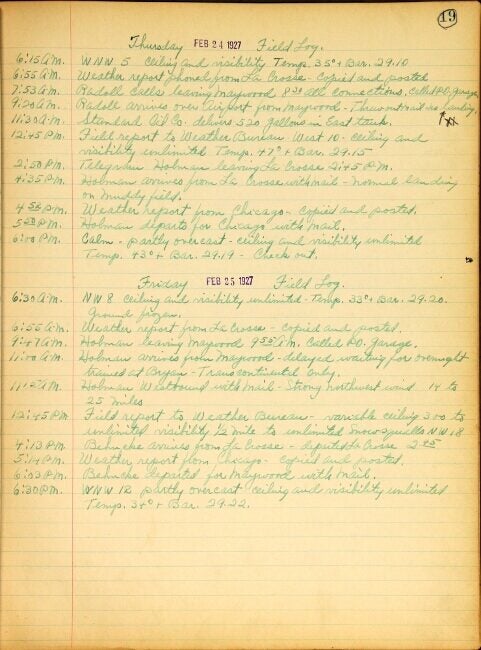 19
Thursday FEB 24 1927 Field Log.
6:15 A.M. WNW 5 Ceiling and visibility Temp. 35° + Bar. 29.10
6:55 A.M. Weather report phoned from La Crosse - Copied and posted
7:53 A.M. Radoll calls leaving Maywood 8:30 All Connections. Called P.O. Garage.
9:20 A.M. Radoll arrives over Airport from Maywood - Threw out mail no landing.
11:30 A.M. Standard Oil Co. delivers 520 gallons in East tank.
12:45 P.M. Field report to Weather Bureau West 10 - Ceiling and
visibility unlimited Temp. 47° + Bar. 29.15
2:50 P.M. Telegram Holman leaving La Crosse 2:45 P.M.
4:35 P.M. Holman arrives from La Crosse with mail - normal landing
on muddy field.
4:58 P.M. Weather report from Chicago - Copied and posted.
P.M. Holman departs for Chicago with Mail.
6:00 P.M. Calm - partly overcast - ceiling and visibility unlimited
Temp. 43° + Bar. 29.19 - Check out.
Friday FEB 25 1927 Field Log.
6:30 A.M. NW 8 Ceiling and visibility unlimited - Temp. 33° + Bar. 29.20.
Ground frozen.
6:55 A.M. Weather report from La Crosse - copied and posted.
9:47 A.M. Holman leaving Maywood A.M. Called P.O. Garage.
11:00 A.M. Holman arrives from Maywood - delayed waiting for overnight
train at Bryan - Transcontinental only.
A.M. Holman Westbound with Mail - Strong northwest wind 14 to
25 miles
12:45 P.M. Field report to Weather Bureau - variable ceiling 300 to
unlimited visibility 1/2 mile to unlimited snow squalls NW 18
4:13 P.M. Behncke arrives from La Crosse - departed La Crosse 2:45
5:14 P.M. Weather report from Chicago - Copied and posted.
6:03 P.M. Behncke departed for Maywood with Mail.
6:30 P.M. WNW 12 partly overcast ceiling and visibility unlimited
Temp. 34° + Bar. 29.22.